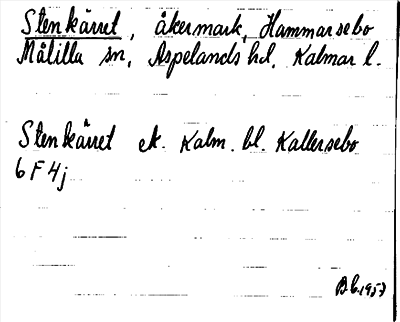 Stenkärret, åkermark, Hammarsebo
Målilla sn, Aspelands hd, Kalmar l.
Stenkärret ek. Kalm. bl. Kallersebo
6 F 4j
1957